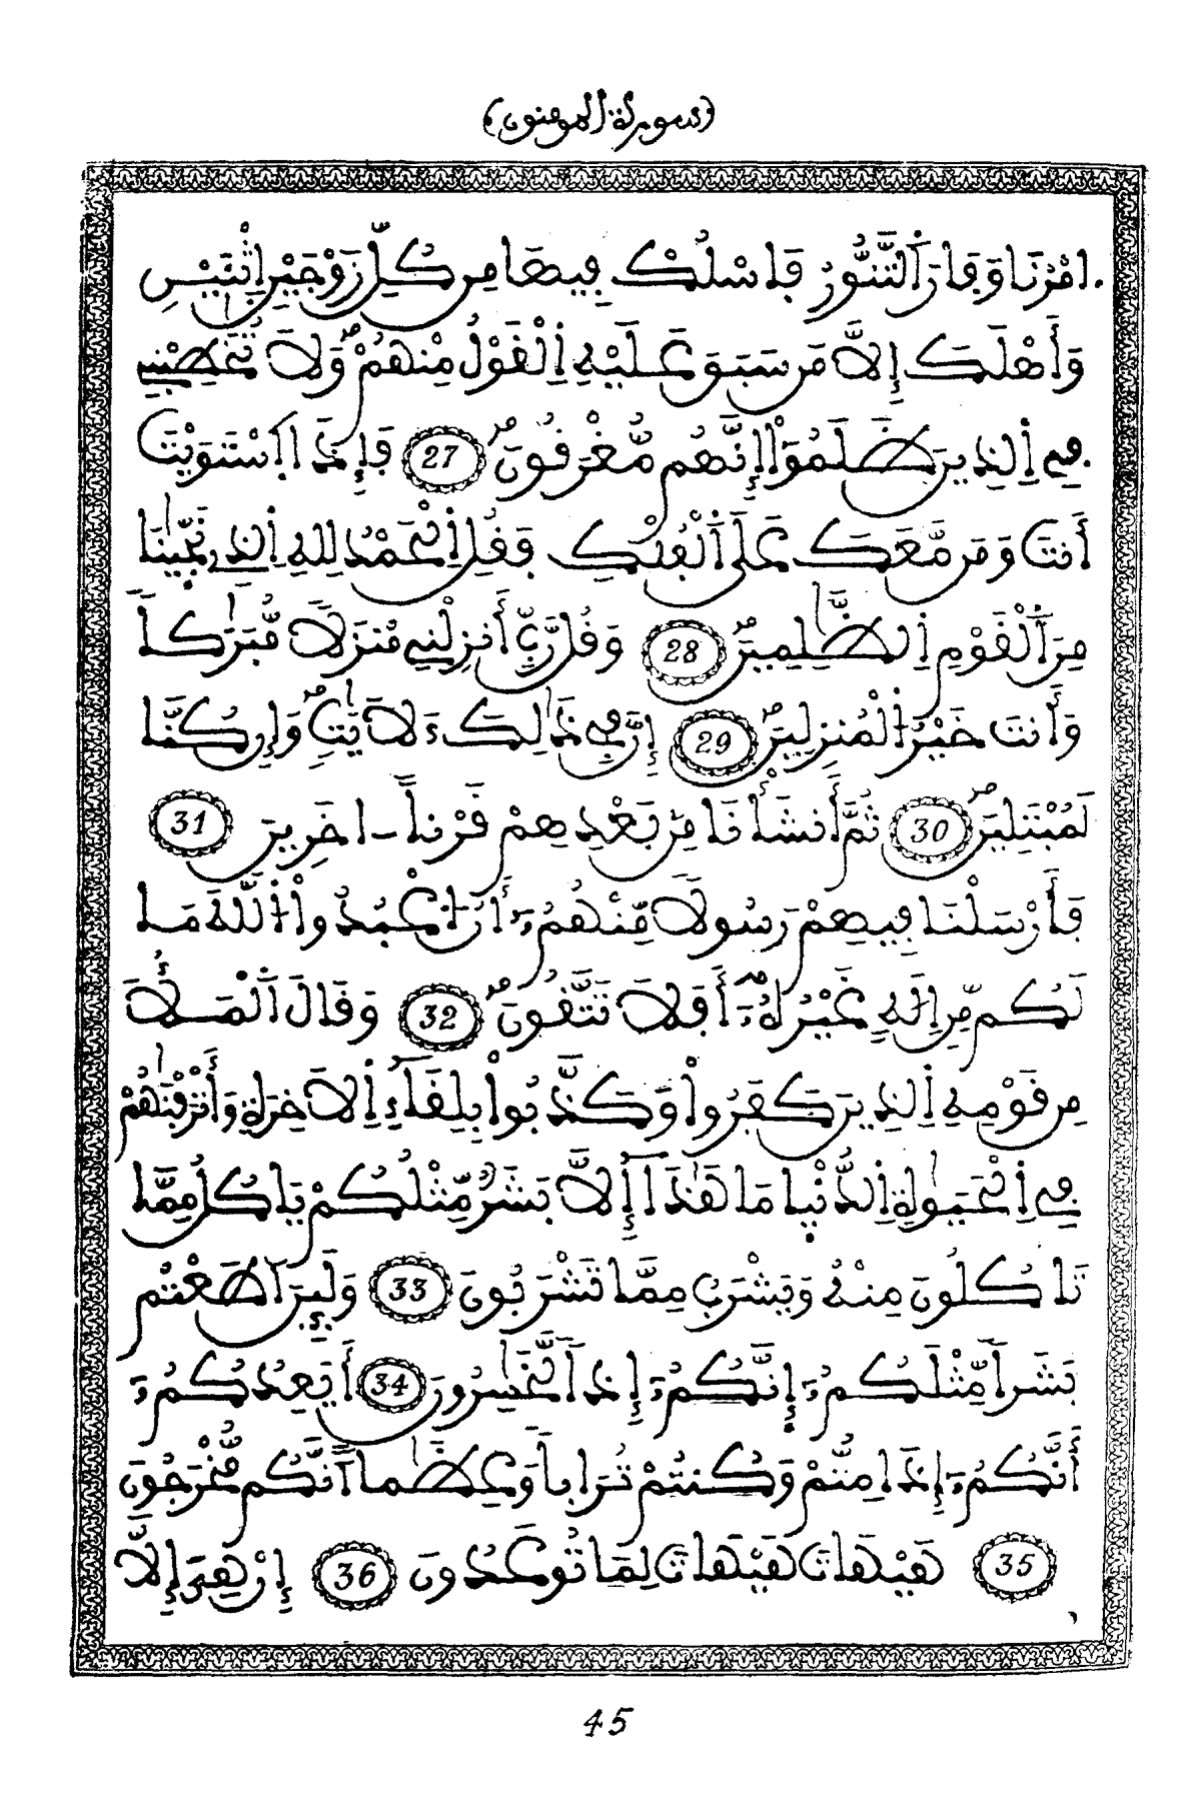 (سورة المومنون)
امْرُنَا وَفَارَ اَلتَّنُّورُ فَاسْلُكْ فِيهَا مِن كُلِّ زَوْجَيْنِ اِثْنَيْنِ
وَأَهْلَكَ إِلاَّ مَن سَبَقَ عَلَيْهِ اِلْقَوْلُ مِنْهُمْ وَلاَ تُخَٰطِبْنِے
فِے اِلذِينَ ظَلَمُوٓاْ إِنَّهُم مُّغْرَقُونَ 27 فَإِذَا اَسْتَوَيْتَ
أَنتَ وَمَن مَّعَكَ عَلَى اَلْفُلْكِ فَقُلِ اِلْحَمْدُ لِلهِ اِلذِے نَجَّيٰنَا
مِنَ اَلْقَوْمِ اِلظَّٰلِمِينَ 28 وَقُل رَّبِّ أَنزِلْنِے مُنزَلاً مُّبَٰرَكاً
وَأَنتَ خَيْرُ اُلْمُنزِلِينَ 29 إِنَّ فِے ذَٰلِكَ ءَلاَيَٰتٍ وَإِن كُنَّا
لَمُبْتَلِينَ 30 ثُمَّ أَنشَأْنَا مِنۢ بَعْدِهِمْ قَرْناً ـ اخَرِينَ 31
فَأَرْسَلْنَا فِيهِمْ رَسُولاً مِّنْهُمُۥٓ أَنُ اُعْبُدُواْ اُللَّهَ مَا
لَكُم مِّنِ اِلَٰهٍ غَيْرُهُۥٓ أَفَلاَ تَتَّقُونَ 32 وَقَالَ اَلْمَلَأُ
مِن قَوْمِهِ اِلذِينَ كَفَرُواْ وَكَذَّبُواْ بِلِقَآءِ اِلاَخِرَةِ وَأَتْرَفْنَٰهُمْ
فِے اِلْحَيَوٰةِ اِلدُّنْيا مَا هَٰذَآ إِلاَّ بَشَرٌ مِّثْلُكُمْ يَاكُلُ مِمَّا
تَاكُلُونَ مِنْهُ وَيَشْرَبُ مِمَّا تَشْرَبُونَ 33 وَلَئِنَ اَطَعْتُم
بَشَراً مِّثْلَكُمُۥٓ إِنَّكُمُۥٓ إِذاً لَّخَٰسِرُونَ 34 أَيَعِدُكُمُۥٓ
أَنَّكُمُۥٓ إِذَا مِتُّمْ وَكُنتُمْ تُرَاباً وَعِظَٰماً اَنَّكُم مُّخْرَجُونَ
35 هَيْهَاتَ هَيْهَاتَ لِمَا تُوعَدُونَ 36 إِنْ هِىَ إِلاَّ
45